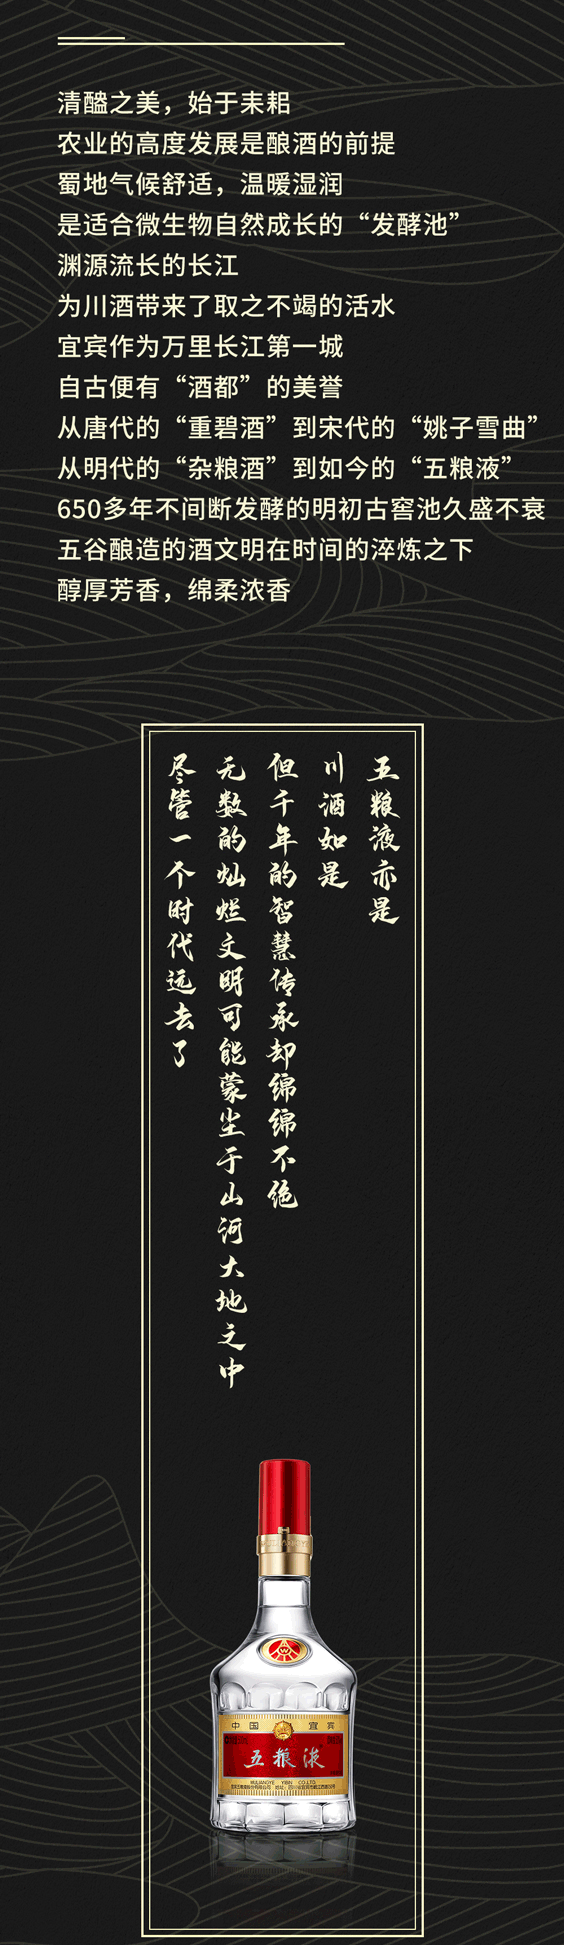 清醠之美，始于耒耜
农业的高度发展是酿酒的前提
蜀地气候舒适，温暖湿润
是适合微生物自然成长的“发酵池”
渊源流长的长江
为川酒带来了取之不竭的活水
宜宾作为万里长江第一城
自古便有“酒都”的美誉
从唐代的“重碧酒”到宋代的“姚子雪曲”
从明代的“杂粮酒”到如今的“五粮液”
650多年不间断发酵的明初古窖池久盛不衰
五谷酿造的酒文明在时间的淬炼之下
醇厚芳香，绵柔浓香
尽管一个时代远去了
无数的灿烂文明可能蒙尘于山河大地之中
但千年的智慧传承却绵绵不绝
川酒如是
五粮液亦是
中国 宜宾
五粮液
WULIANGYE YIBIN CO.,LTD.